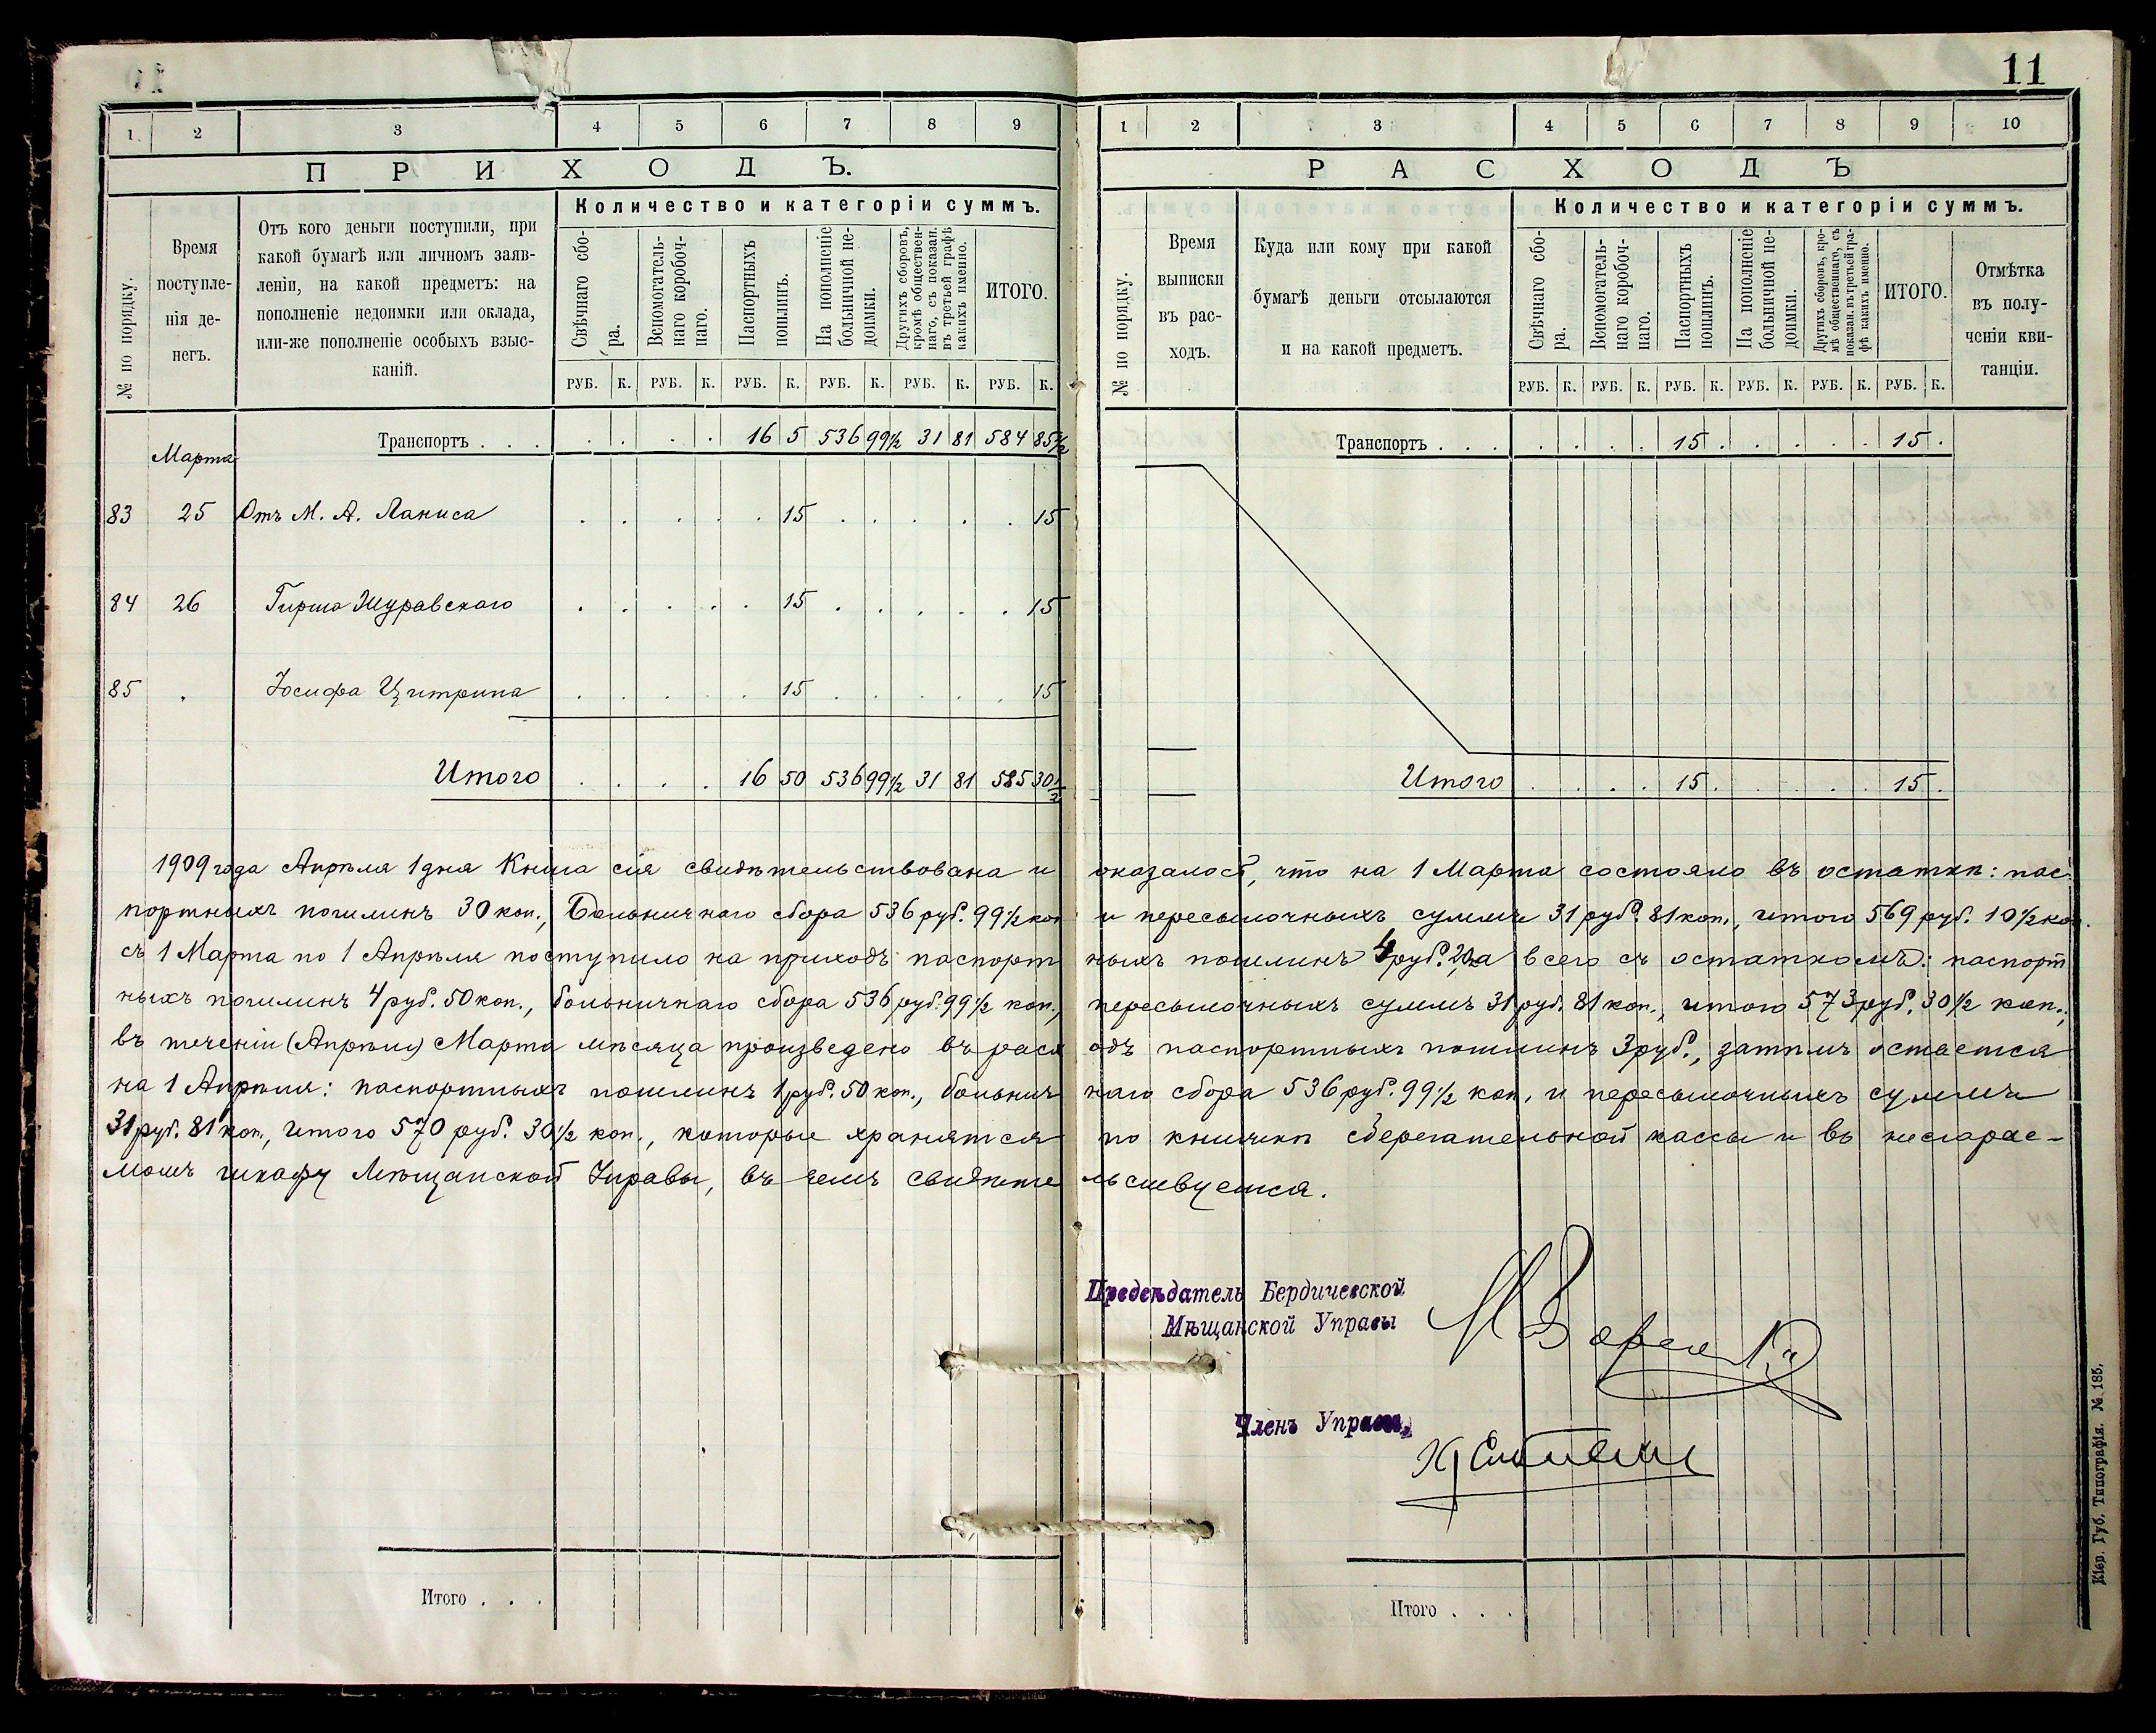 11
1 2 3 4 5 6 7 8 9
ПРИХОДЪ.
Количество и категоріи суммъ.
№ по порядку.
Время
поступле-
нія де-
негъ.
Отъ кого деньги поступили, при
какой бумагѣ или личномъ заяв-
леніи, на какой предметъ: на
пополненіе недоимки или оклада,
или-же пополненіе особыхъ взыс-
каній.
Свѣчнаго сбо-
ра.
Вспомогатель-
наго коробоч-
наго.
Паспортныхъ
пошлинъ.
На пополненіе
больничной не-
доимки.
Другихъ сборовъ,
кромѣ обществен-
наго, съ показан.
въ третьей графѣ
какихъ именно.
ИТОГО.
РУБ. К. РУБ. К. РУБ. К. РУБ. К. РУБ. К. РУБ. К.
Транспортъ . . . . . . . 16 5 536 99½ 31 81 584 85½
Марта
83 25 Отъ М. А. Ланиса . . . . . 15 . . . . . 15
84 26 Гирша Журавскаго . . . . . 15 . . . . . 15
85 . Іосифа Цитрина . . . . . 15 . . . . . 15
Итого . . . . 16 50 536 99½ 31 81 585 30½
1 2 3 4 5 6 7 8 9 10
РАСХОДЪ
Количество и категоріи суммъ.
№ по порядку.
Время
выписки
въ рас-
ходъ.
Куда или кому при какой
бумагѣ деньги отсылаются
и на какой предметъ.
Свѣчнаго сбо-
ра.
Вспомогатель-
наго коробоч-
наго.
Паспортныхъ
пошлинъ.
На пополненіе
больничной не-
доимки.
Другихъ сборовъ, кро-
мѣ общественнаго, съ
показан. въ третьей гра-
фѣ какихъ именно.
ИТОГО.
Отмѣтка
въ полу-
ченіи кви-
танціи.
РУБ. К. РУБ. К. РУБ. К. РУБ. К. РУБ. К. РУБ. К.
Транспортъ . . . . . . . 15 . . . . . 15 .
Итого . . . . 15 . . . . . 15 .
1909 года Апрѣля 1 дня Книга сія свидѣтельствована и оказалось, что на 1 Марта состояло въ остаткѣ: пас-
портныхъ пошлинъ 30 коп., Больничнаго сбора 536 руб. 99½ коп и пересылочныхъ суммъ 31 руб. 81 коп., итого 569 руб. 10½ коп.
съ 1 Марта по 1 Апрѣля поступило на приходъ паспорт ныхъ пошлинъ 4 руб. 20 а всего съ остаткомъ: паспорт
ныхъ пошлинъ 4 руб. 50 коп., больничнаго сбора 536 руб. 99½ коп., пересылочныхъ суммъ 31 руб. 81 коп., итого 573 руб. 30½ коп.,
въ теченіи (Апрѣля) Марта мѣсяца произведено въ расх одъ паспортныхъ пошлинъ 3 руб., затѣмъ остается
на 1 Апрѣля: паспортныхъ пошлинъ 1 руб. 50 коп., больнич наго сбора 536 руб. 99½ коп, и пересылочныхъ суммъ
31 руб. 81 коп., итого 570 руб. 30½ коп., которые хранятся по книжкѣ сберегательной кассы и въ несгарае-
момъ шкафу Мѣщанской Управы, въ чемъ свидѣте льствуется.
Предсѣдатель Бердичевской
Мѣщанской Управы
Членъ Управы,
Итого . . .
Итого . . .
Кіев. Губ. Типографія. № 185.